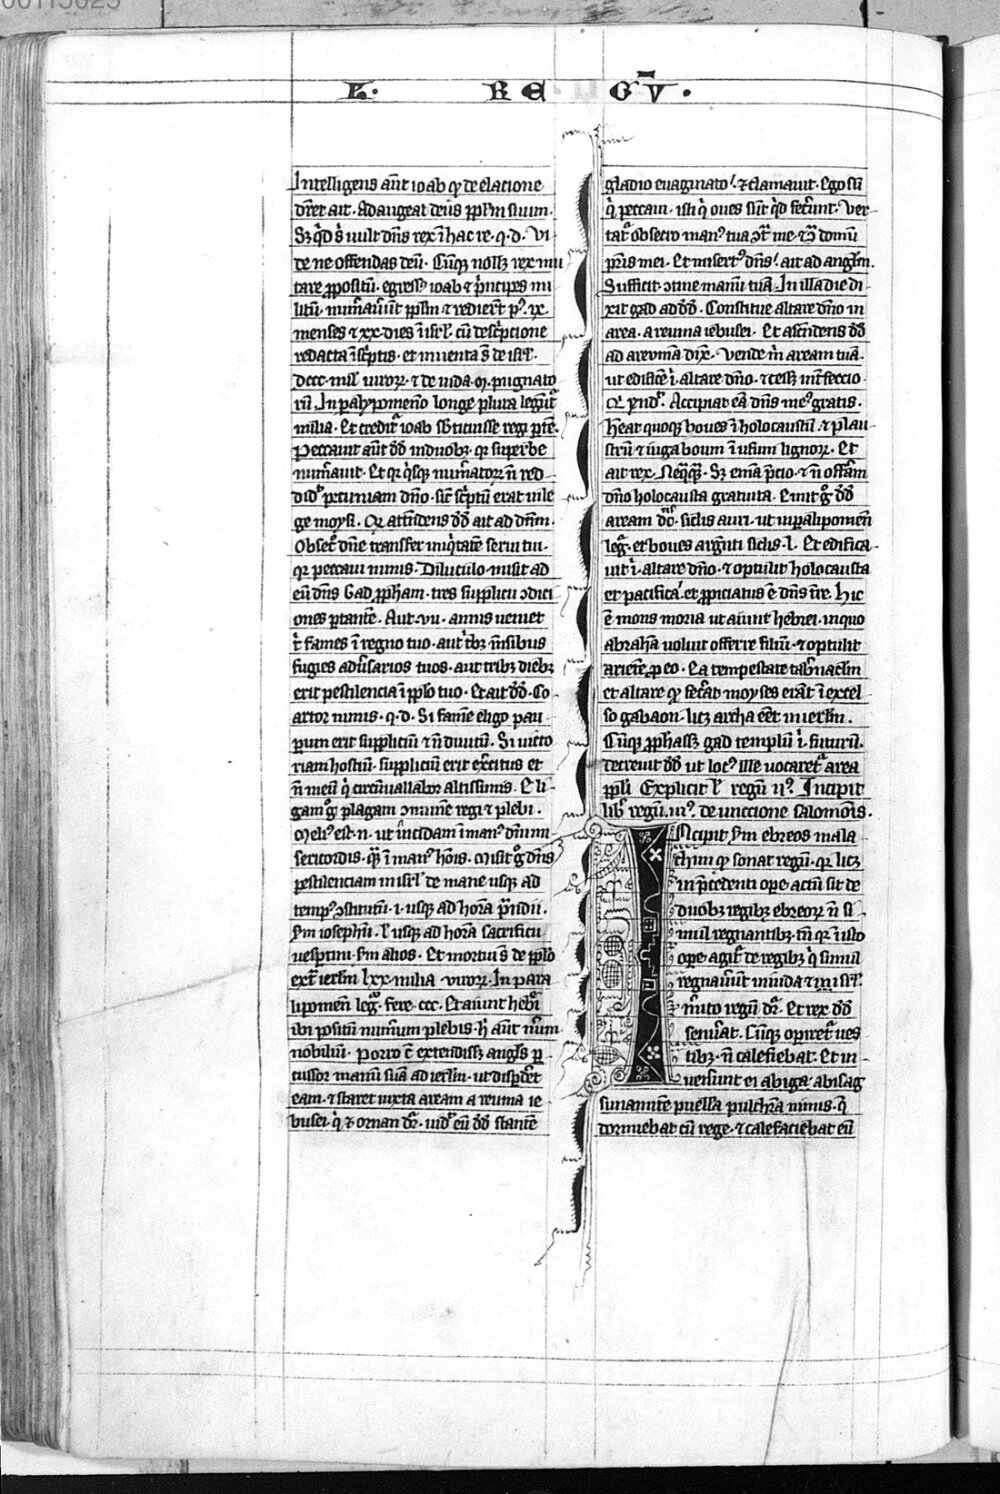 L. RE GV̄.
Intelligens aūt ioab qͥ de elacione
dn̄ret ait. Adaugeat deus ppl̄m suum.
Sꝫ qͥd s̄ vult dn̄s rex ī hac re. q. d. Vi
de ne offendas deū. Cūqꝫ nollꝫ rex mu
tare ꝓpositū. egressꝰ ioab ⁊ pͥncipes mi
litū. num̄auūt ppl̄m ⁊ redierūt pꝰ. ix.
menses ⁊ xx. dies ī isrl̄. cū descͥpcione
redacta ī scͥptis. et inuenta s̄ de isrl̄.
dccc. mil̄ uiroꝝ. ⁊ de iuda. q. pugnato
rū. In paralypomeno longe plura legūtᷣ
milia. Et creditᷣ ioab sb̄ticuisse regi ptē.
Peccauit aūt dd̄ in duobꝫ. qꝛ superbe
num̄auit. Et qꝛ qͥsqꝫ num̄atoꝝ n̄ red
didᷣ pecuniam dn̄o. sic̄ scͥptū erat in le
ge moysi. Qꝛ attn̄dens dd̄ ait ad dn̄m.
Obsecͦ dn̄e transfer iniqͥtatē serui tui.
qꝛ peccaui nimis. Diluculo misit ad
eū dn̄s Gad ꝓph̄am. tres supplicii ↄdici
ones ptantē. Aut. vii. annis ueniet
t̄ fames ī regno tuo. aut tͥbꝫ m̄sibus
fugies adu̓sarios tuos. aut tribꝫ diebꝫ
erit pestilencia ī pplo tuo. Et ait dd̄. Co
artor nimis. q. d. Si famē eligo pau
perum erit suppliciū ⁊ n̄ diuitū. Si victo
riam hostiū. suppliciū erit exͤcitus et
n̄ meū qͥ circūuallabor altissimis. Eli
gam gͦ plagam ↄmunē regi ⁊ plebi.
Meliꝰ est. n. ut incidam ī manꝰ dn̄i mi
sericordis. qᷓ ī manꝰ ho̅is. Misit gͦ dn̄s
pestilenciam in isrl̄ de mane usqꝫ ad
tempꝰ ↄstitutū. i. usqꝫ ad horā pͣndii.
scd̄m iosephū. l̄ usqꝫ ad horā sacrificii
uesptini. scd̄m alios. Et mortui s̄ de pplo
ext̄ ierlm̄ lxx. milia viroꝝ. In para
lipomen̄ legitᷣ. fere. ccc. Et aiunt hebͥ
ibi positū numerum plebis. h̄ aūt num̄
nobiliū. Porro c̄ extendissꝫ angl̄s per
cussor manū suā ad ierlm̄. ut dispderet
eam. ⁊ staret iuxta aream areuna ie
busei. qͥ ⁊ ornan dr̄. uidᷣ eū dd̄ stantē
gladio euaginato. ⁊ clamauit. Ego sū
qͥ peccaui. isti qͥ oues sūt qͥd fecerunt. Ver
tatᷣ obsecro manꝰ tua ↄtͣ me. ⁊ ↄtͣ domū
pͣris mei. Et misertꝰ dn̄s. ait ad angl̄m.
Sufficit ↄtine manū tuā. In illa die di
xit gad ad dd̄. Constitue altare dn̄o in
area. areuna iebusei. Et ascendens dd̄
ad areunā dixͭ. Vende m̄ aream tuā.
ut edificē ī altare dn̄o. ⁊ cessꝫ int̄fectio.
Cͥ rn̄dᷣ. Accipiat eā dn̄s meꝰ gratis.
Habeat quoqꝫ boues ī holocaustū. ⁊ plau
strū ⁊ iuga boum ī usum lignoꝝ. Et
ait rex. Neqͣqͣ. Sꝫ emā p̄cio. ⁊ n̄ offerā
dn̄o holocausta gratuita. Emit gͦ dd̄
aream dc̄. siclis auri. ut in paralipomen̄
legitᷣ. et boues argenti siclis. l. Et edifica
uit ī altare dn̄o. ⁊ optulit holocausta
et pacifica. et ꝓpiciatus ē dn̄s terre. Hic
ē mons moria ut aiunt hebrei. in quo
abrahā voluit offerre filiū. ⁊ optulit
arietē ꝓ eo. Ea tempestate tab̄nactm
et altare qͦ fecͭat moyses erāt ī excel
so gabaon. licꝫ archa eēt in ierlm̄.
Cūqꝫ ꝓph̄assꝫ gad templū ī futurū.
decreuit dd̄ ut locꝰ ille uocaretᷣ area
ppl̄i. Explicit l̄ regū iiꝰ. Incipit
lib̄ regū. iiiꝰ. de unccione salomonis.
Incipit scd̄m ebreos mala
chim qͦ sonat regū. qꝛ licꝫ
in p̄cedenti oꝑe actū sit de
duobꝫ regibꝫ ebreoꝝ n̄ si
mul regnantibꝫ. tn̄ qꝛ in isto
oꝑe. agitᷣ de regibꝫ qͥ simul
regnauūt in iuda ⁊ in isrl̄.
merito regū dr̄. Et rex dd̄
senuerat. Cūqꝫ operiretᷣ ues
tibꝫ. n̄ calefiebat. Et in
uenerunt ei abigͣ abisag
sunamitē puellā pulchrā nimis. qͥ
dormiebat cū rege. ⁊ calefaciebat eū